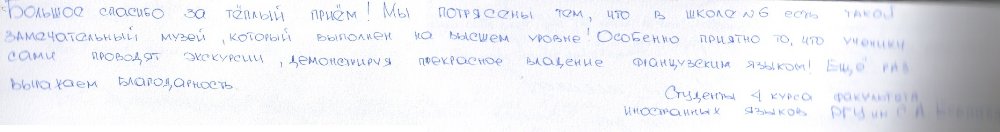 Большое спасибо за тёплый приём! Мы потрясены тем, что в школе №6 есть такой
замечательный музей, который выполнен на высшем уровне! Особенно приятно то, что ученики
сами проводят экскурсии, демонстрируя прекрасное владение французским языком! Ещё раз
выражаем благодарность.
Студенты 4 курса факультета
иностранных языков РГУ им С А